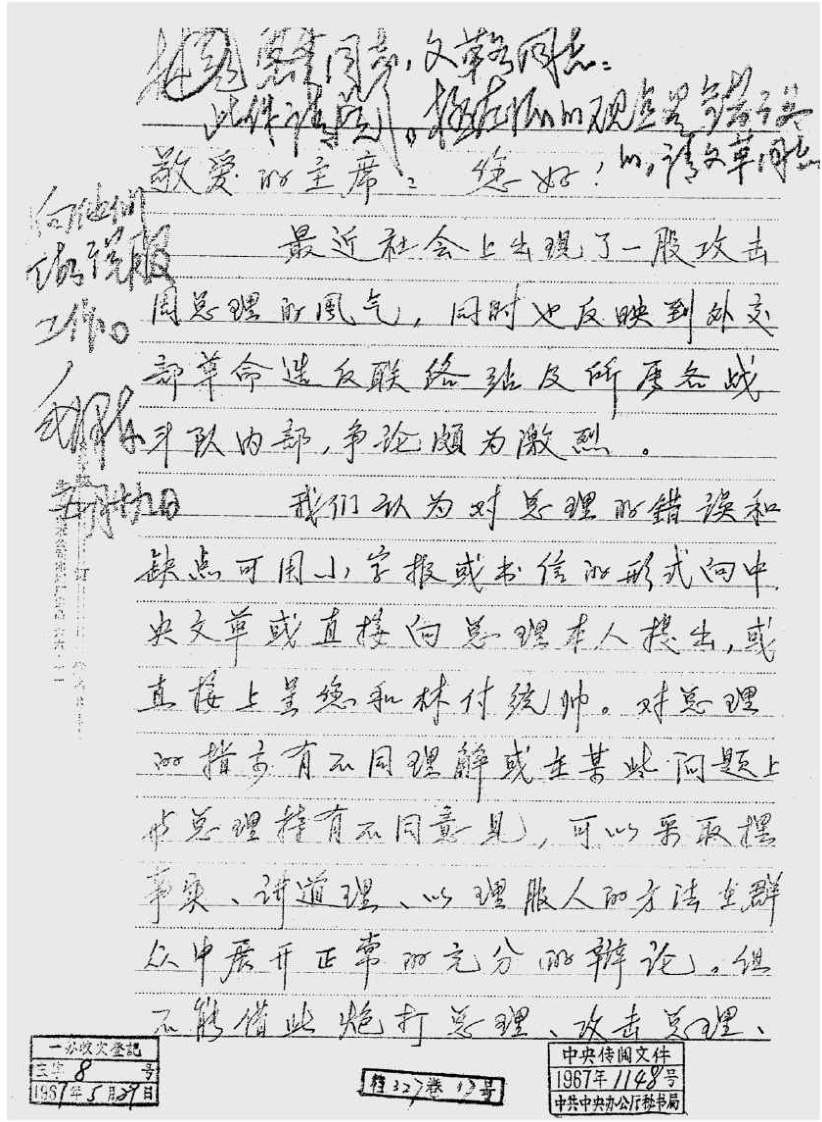 林彪恩来同志,文革各同志:
此件请阅。极左派的观点是错误
的,请文革同志
向他们
做说服
工作。
毛泽东
五月廿九日
敬爱的主席:您好!
最近社会上出现了一股攻击
周总理的風气,同时也反映到外交
部革命造反联络站及所属各战
斗队内部,争论颇为激烈。
我们认为对总理的错误和
缺点可用小字报或书信的形式向中
央文革或直接向总理本人提出,或
直接上呈您和林付统帅。对总理
的指示有不同理解或在某些问题上
与总理持有不同意见,可以采取摆
事实、讲道理、以理服人的方法在群
众中展开正常的充分的辩论。但
不能借此炮打总理、攻击总理、
一办收文登記
主字8号
1967年5月29日
档327卷13号
中央传阅文件
1967年1148号
中共中央办公厅秘书局